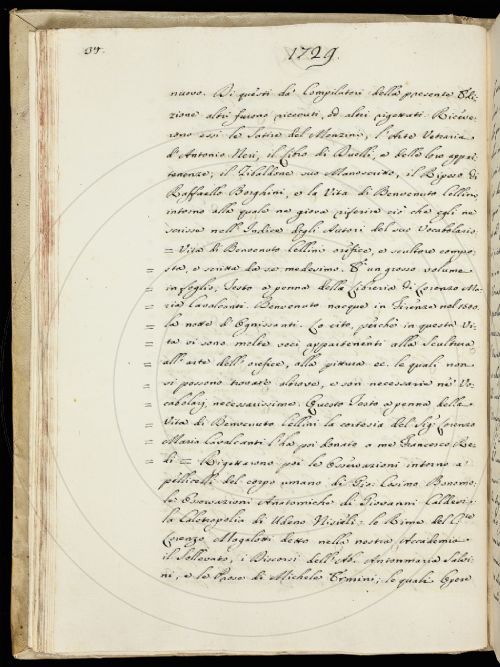 1729.
nuovo. Di questi da' Compilatori della presente Edi-
zione altri furono ricevuti, ed altri rigettati. Riceve-
rono essi le Satire del Menzini, l'Arte Vetraria
d'Antonio Neri, il Libro di Duelli, e della loro appar-
tenenze, il Zibaldone suo Manoscritto, il Riposo di
Raffaello Borghini, e la Vita di Benvenuto Cellini
intorno alla quale ne giova riferire ciò che egli ne
scrisse nell' Indice degli Autori del suo Vocabolario
= Vita di Benvenuto Cellini orefice, e scultore compo-
= sta, e scritta da se medesimo. È un grosso volume
= in foglio, Testo a penna della Libreria di Lorenzo Ma-
= ria Cavalcanti. Benvenuto nacque in Firenze nel 1500.
= la notte d'Ognissanti. Lo cito, perchè in questa Vi-
= ta vi sono molte voci appartenenti alla Scultura,
= all' arte dell' orefice, alla pittura ec. le quali non
= si possono trovare altrove, e son necessarie ne' Vo-
= cabolarj, necessarissime. Questo Testo a penna della
= Vita di Benvenuto Cellini la cortesia del Sig.r Lorenzo
= Maria Cavalcanti l'ha poi donato a me Francesco Re-
= di = Rigettarono poi le Osservazioni intorno a'
pellicelli del corpo umano di Gio: Cosimo Bonomo;
le Osservazioni Anatomiche di Giovanni
la Calotropolia di Udeno Nisieli; le Rime del C.te
Lorenzo Magalotti detto nella nostra Accademia
il Sollevato, i Discorsi dell' Ab. Antonmaria Salvi-
ni, e le Prose di Michele Ermini; le quali Opere